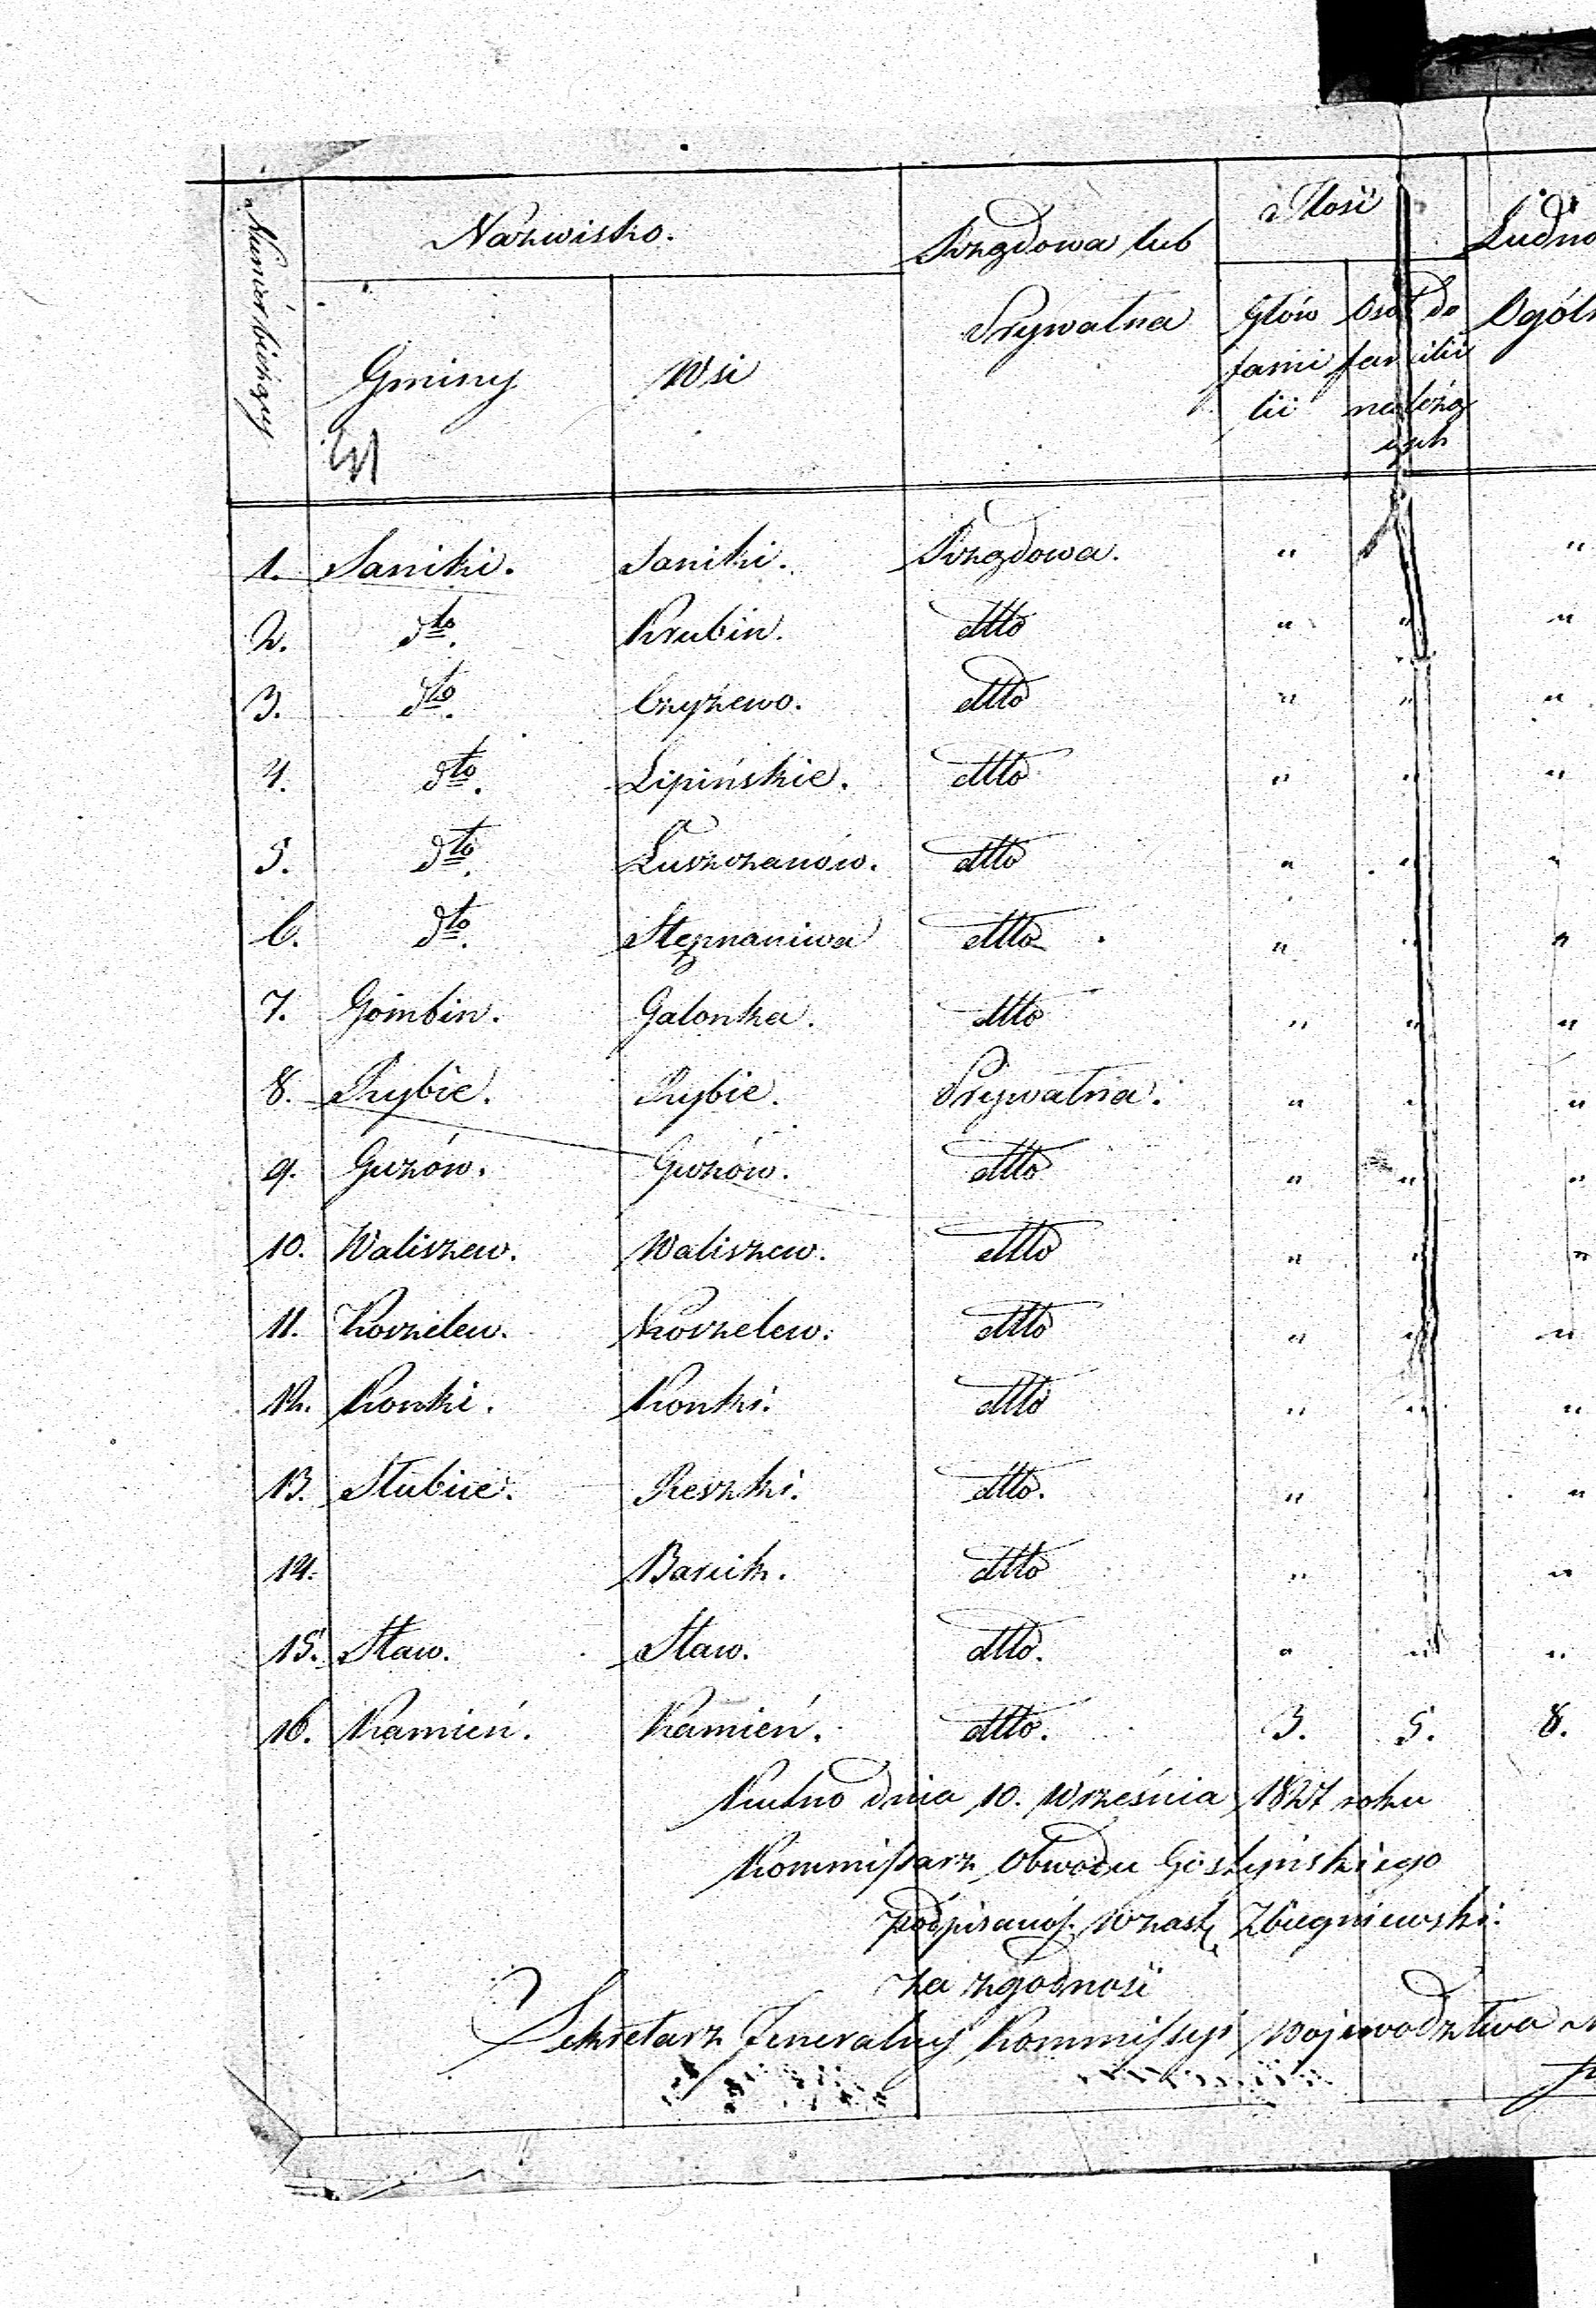 Numer bieżący
Nazwisko.
Rządowa lub
Ilość
Ludno
Gminy
Wsi
Prywatna
Głów
fami
lii
Osób do
familii
należą
cych
Ogóln
1. Saniki. Saniki. Rządowa. " "
2. dto. Krubin. dtto " " "
3. dto. Czyżewo. dtto " " "
4. dto. Lipińskie. dtto " " "
5. dto. Luszczanów. dtto " " "
6. dto. dtto " " "
7. Gombin. Galonka. dtto " " "
8. Rybie. Rybie. Prywatna. " " "
9. Guzów. Guzów. dtto " " "
10. Waliszew. Waliszew. dtto " " "
11. Kozelew. dtto " " "
12. Konki. Konki. dtto " " "
13. Słubice. Reszki. dtto. " " "
14. Baruch. dtto " " "
15. Staw. Staw. dtto. " " "
16. Kamień. Kamień. dtto. 3. 5. 8.
Kutno dnia 10. Września 1827 roku
Kommissarz Obwodu Gostyńskiego
podpisano w zast. Zbiegniewski.
Za zgodność
Sekretarz Jeneralny Kommissyi Województwa